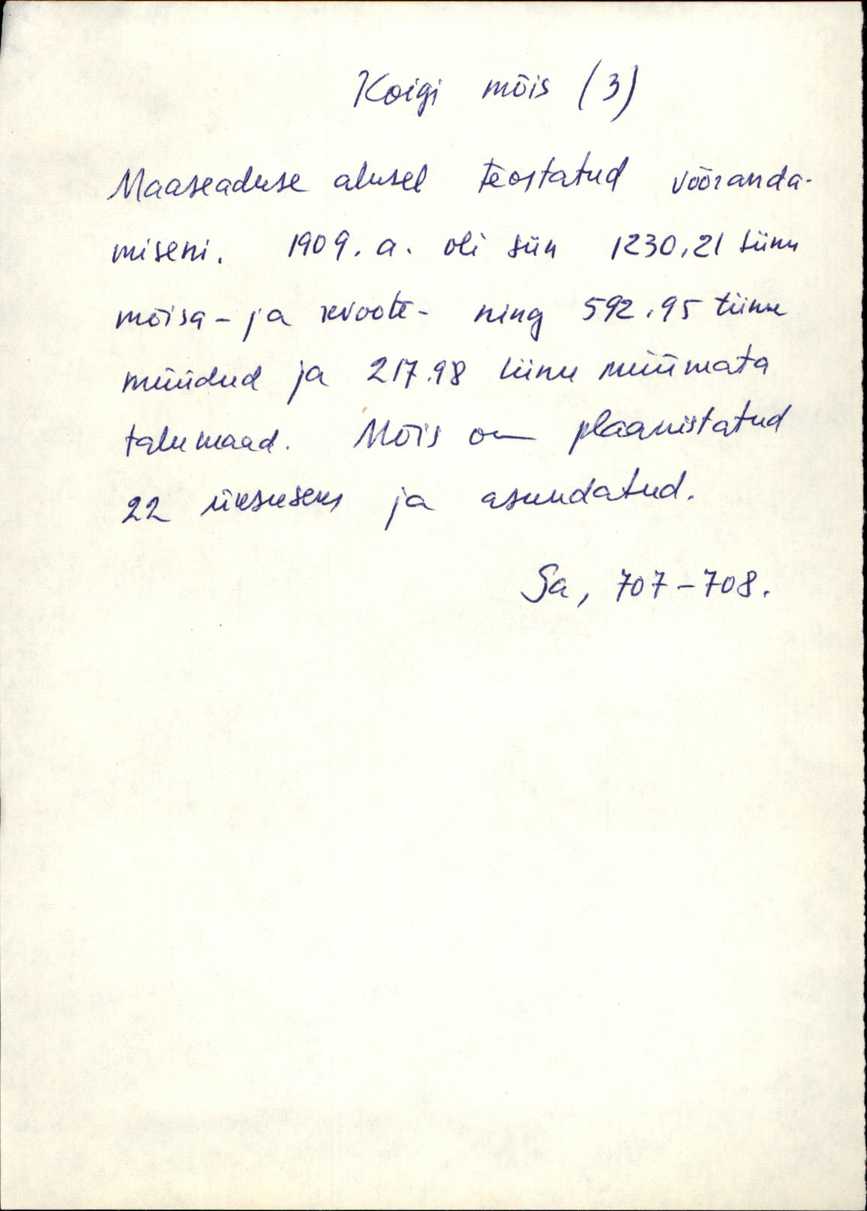 Koigi mõis (3)
Maaseaduse alusel teostatud vööranda-
miseni. 1909. a. oli siin 1230,21 tiinu
mõisa- ja kvoote- ning 592,95 tiinu
müüdud ja 217.98 tiinu müümata
talumaad. Mõis on plaanistatud
22 üksuseks ja asundatud.
Sa, 707-708.